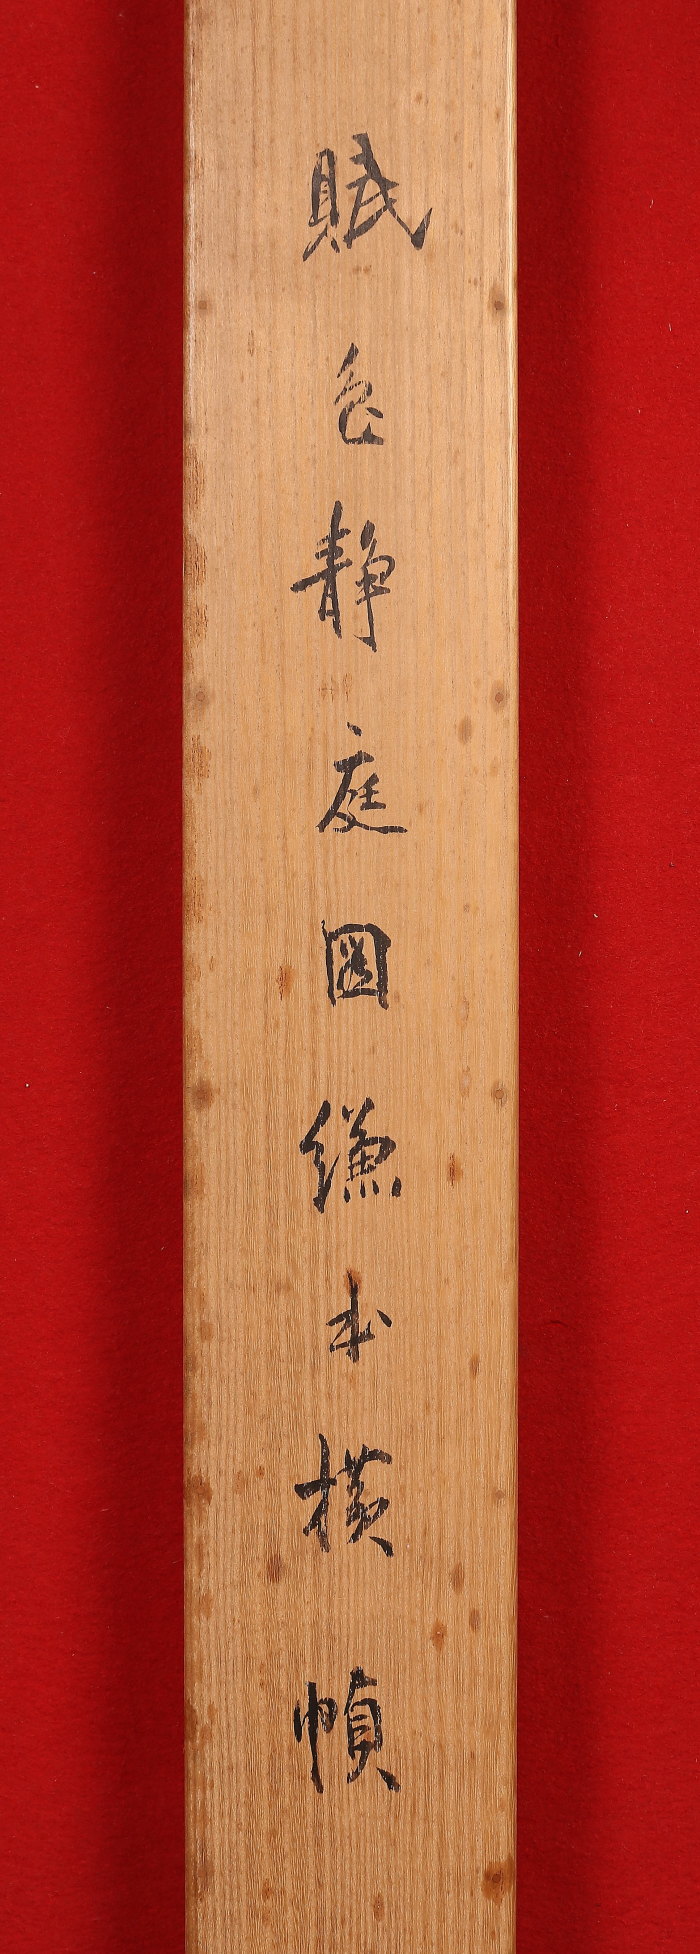 賦色静庭図縑本横幀